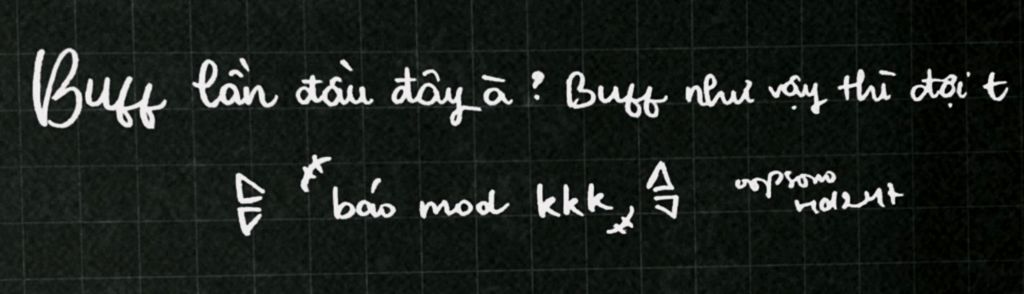 Buff lần đầu đây à? Buff như vậy thì đợi t
báo mod kkk